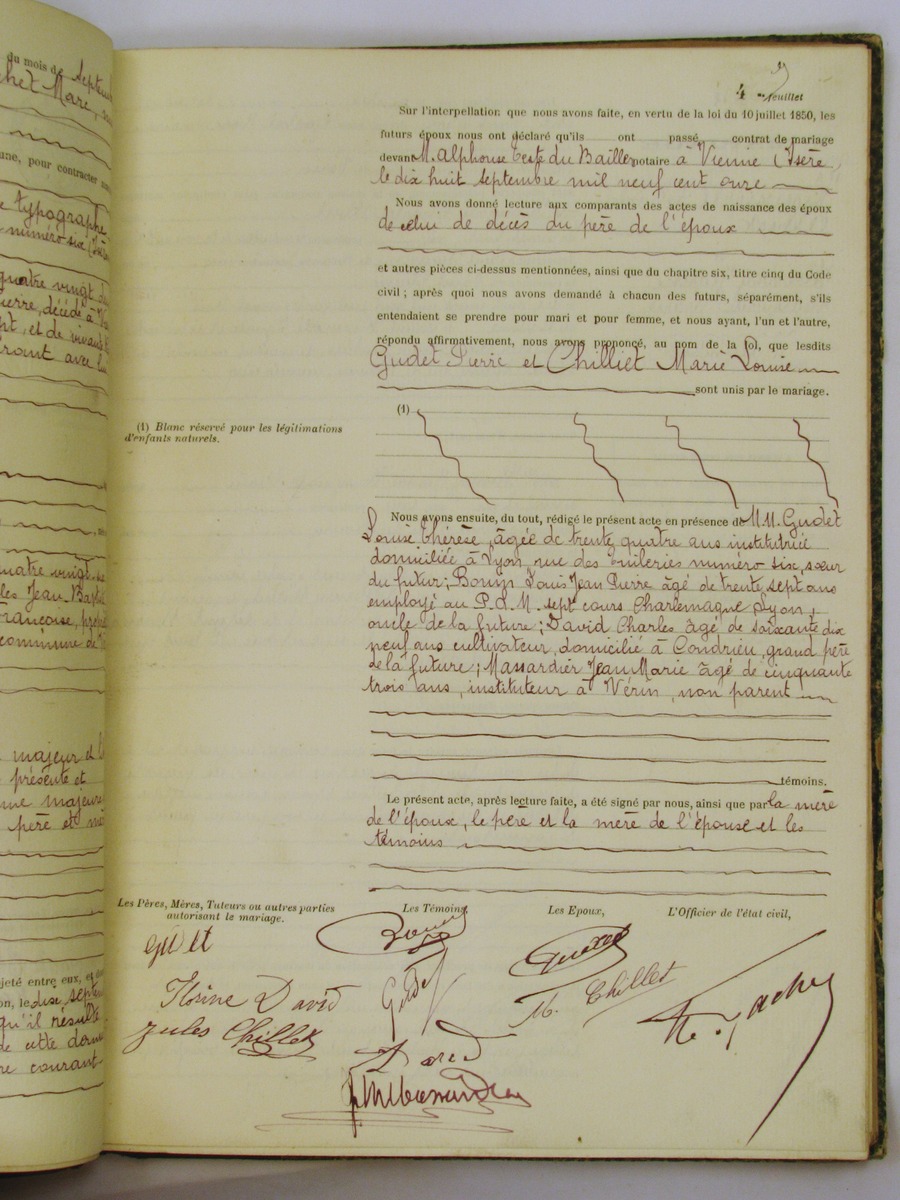 du mois de Septem
chet Marc,
ane, pour contracter
typographe
numéro six (Isè
quatre vingt
ierre, décédé à
pt, et de vivante
rant avec
uatre vingt
les Jean-Bapti
Françoise, pr
commune de
majeur et
présente et
me majeure
père et m
jeté entre eux, et
on, le dix septe
qu'il résulte
de cette dern
re courant
4 feuillet
Sur l'interpellation que nous avons faite, en vertu de la loi du 10 juillet 1850, les
futurs époux nous ont déclaré qu'ils ont passé contrat de mariage
devant M. Alphonse Teste du Bailler notaire à Vienne (Isère
le dix huit Septembre mil neuf cent onze
Nous avons donné lecture aux comparants des actes de naissance des époux
de celui de décès du père de l'époux
et autres pièces ci-dessus mentionnées, ainsi que du chapitre six, titre cinq du Code
civil ; après quoi nous avons demandé à chacun des futurs, séparément, s'ils
entendaient se prendre pour mari et pour femme, et nous ayant, l'un et l'autre,
répondu affirmativement, nous avons prononcé, au nom de la loi, que lesdits
Gudet Pierre et Chilliet Marie Louise
sont unis par le mariage.
(1)
(1) Blanc réservé pour les légitimations
d'enfants naturels.
Nous avons ensuite, du tout, rédigé le présent acte en présence de M.M. Gudet
Louise Thérèse, âgée de trente quatre ans institutrice
domiciliée à Lyon, rue des Tuileries numéro six, sœur
du futur ; Bouin Louis Jean Pierre âgé de trente sept ans
employé au P.L.M. sept cours Charlemagne Lyon,
oncle de la future ; David Charles âgé de soixante dix
neuf ans cultivateur, domicilié à Condrieu, grand père
de la future ; Massardier Jean Marie âgé de cinquante
trois ans, instituteur à Vérin, non parent
témoins.
Le présent acte, après lecture faite, a été signé par nous, ainsi que par la mère
de l'époux, le père et la mère de l'épouse et les
témoins
Les Pères, Mères, Tuteurs ou autres parties
autorisant le mariage.
Les Témoins,
Les Epoux,
L'Officier de l'état civil,
Gudet
Florine David
Jules Chillet
Gudet
David
Gudet
M. Chillet